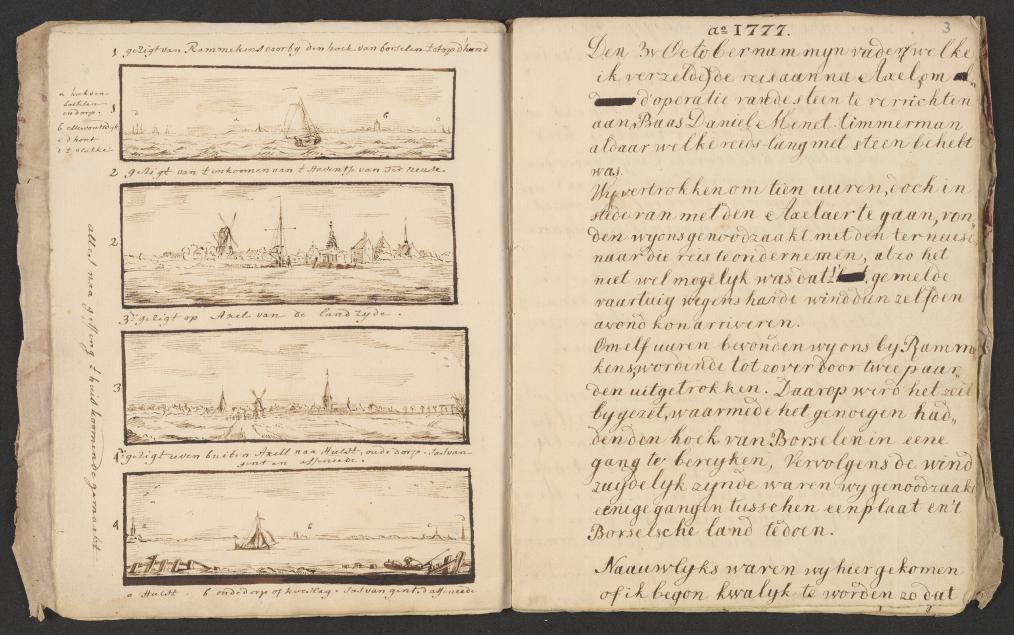 1 gezigt van Rammekens voorby den hoek van borselen
a hoek van
borselen
1
2 gezigt van t inkoomen van t Haventje van Ter Neuse
2
3 gezigt op Axel van de land zyde.
3
4 gezigt even buiten Axell naa Hulst, oude dorp. Sas van
gent en assenede.
4
a Hulst. b oude dorp of koeslag. Sas van gent. d assenede
altied naa gissing t huis koomende gemaakt
3
ao 1777.
Den 3n October nam myn vader welke
ik verzelde de reis aan na Axel, om
d'operatie van de steen te verrichten
aan Baas Daniel Menet timmerman
aldaar welke reeds lang met steen behebt
was.
Wy vertrokken om tien uuren, doch in
stede van met den Axelaer te gaan, von
den wy ons genoodzaakt met den ter neuse
naar die reis te ondernemen, alzo het
niet wel mogelyk was dat gemelde
vaartuig wegens harde wind dan zelfden
avond kon arriveren.
Om elf uuren bevonden wy ons by Ramme
kens, wordende tot zover door twee paar
den uitgetrokken. Daarop wierd het zeil
bygezet, waarmede het genoegen had„
den den hoek van Borselen in eene
gang te bereyken, Vervolgens de wind
zuydelyk zynde waren wy genoodzaakt
eenige gangen tusschen een plaat en 't
Borselsche land te doen.
Naauwlyks waren wy hier gekomen
of ik begon kwalyk te worden zo dat